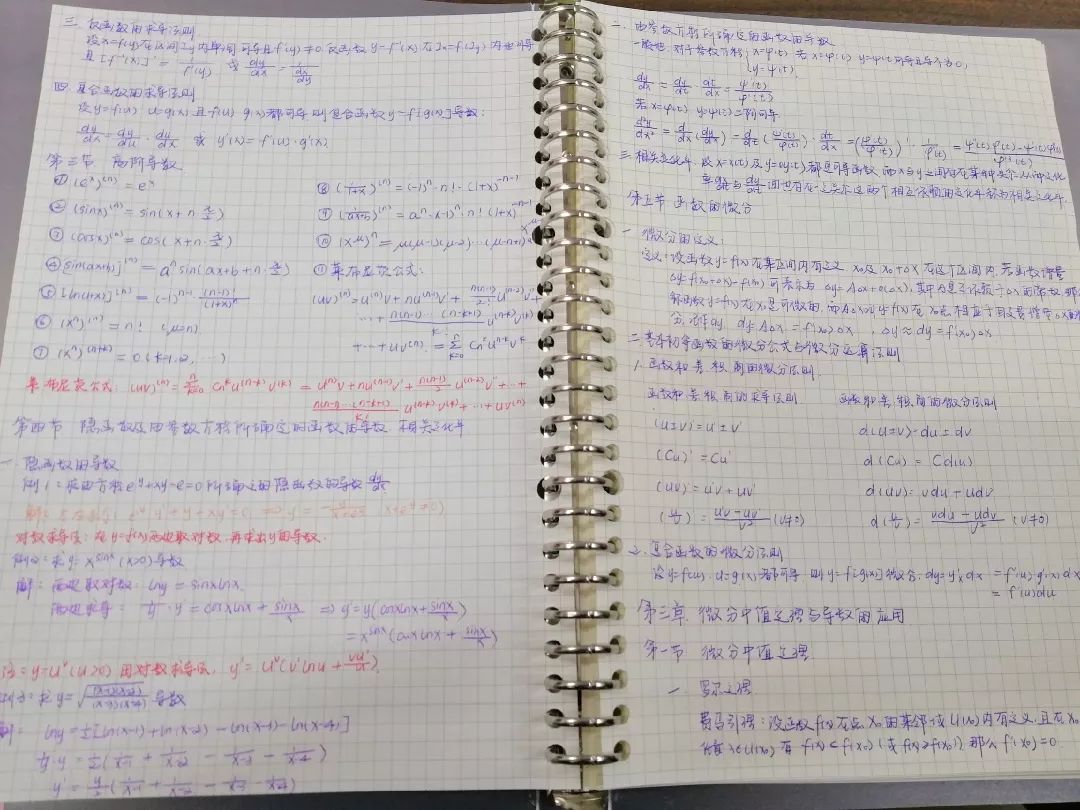 三. 反函数的求导法则
设x=f(y)在区间Iy内单调可导且f'(y)≠0 反函数y=f⁻¹(x)在Ix=f(Iy)内也可导
且[f⁻¹(x)]'=1/f'(y) 或 dy/dx=1/(dx/dy)
四. 复合函数的求导法则
设y=f(u) u=g(x)且f(u) g(x)都可导 则复合函数y=f[g(x)]导数:
dy/dx=dy/du·du/dx 或 y'(x)=f'(u)·g'(x)
第三节 高阶导数
① (eˣ)⁽ⁿ⁾=eˣ
② (sinx)⁽ⁿ⁾=sin(x+n·π/2)
③ (cosx)⁽ⁿ⁾=cos(x+n·π/2)
④ [sin(ax+b)]⁽ⁿ⁾=aⁿsin(ax+b+n·π/2)
⑤ [ln(1+x)]⁽ⁿ⁾=(-1)ⁿ⁻¹ (n-1)!/(1+x)ⁿ
⑥ (xⁿ)⁽ⁿ⁾=n! (μ=n)
⑦ (xⁿ)⁽ⁿ⁺ᵏ⁾=0(k=1,2,…)
⑧ (1/(1+x))⁽ⁿ⁾=(-1)ⁿ·n!·(1+x)⁻ⁿ⁻¹
⑪ 莱布尼茨公式:
(uv)⁽ⁿ⁾=u⁽ⁿ⁾v+nu⁽ⁿ⁻¹⁾v'+n(n-1)/2! u⁽ⁿ⁻²⁾v''+
…+n(n-1)…(n-k+1)/k! u⁽ⁿ⁻ᵏ⁾v⁽ᵏ⁾
+…+uv⁽ⁿ⁾=
莱布尼茨公式: (uv)⁽ⁿ⁾= Cnᵏu⁽ⁿ⁻ᵏ⁾v⁽ᵏ⁾=u⁽ⁿ⁾v+nu⁽ⁿ⁻¹⁾v'+n(n-1)/2 u⁽ⁿ⁻²⁾v''+…+
n(n-1)…(n-k+1)/k! u⁽ⁿ⁻ᵏ⁾v⁽ᵏ⁾+…+uv⁽ⁿ⁾
第四节 隐函数及由参数方程所确定的函数的导数 相关变化率
一. 隐函数的导数
例1: 求由方程eʸ+xy-e=0所确定的隐函数的导数dy/dx
对数求导法: 在y=f(x)两边取对数, 再求出y的导数.
例2: 求y=xˢⁱⁿˣ(x>0)导数
解: 两边取对数: lny=sinxlnx
两边求导: 1/y·y'=cosxlnx+sinx/x ⇒ y'=y(cosxlnx+sinx/x)
=xˢⁱⁿˣ(cosxlnx+sinx/x)
注: y=uᵛ(u>0)用对数求导法, y'=uᵛ(v'lnu+vu'/u)
例3: 求y=√((x-1)(x-2)/(x-3)(x-4))导数
解: lny=1/2[ln(x-1)+ln(x-2)-ln(x-3)-ln(x-4)]
1/y·y'=1/2(1/(x-1)+1/(x-2)-1/(x-3)-1/(x-4))
y'=y/2(1/(x-1)+1/(x-2)-1/(x-3)-1/(x-4))
二. 由参数方程所确定的函数的导数
一般地 对于参数方程{x=φ(t) 若x=φ(t) y=ψ(t)可导且导不为0,
y=ψ(t)
dy/dx=dy/dt·dt/dx=ψ'(t)/φ'(t)
若x=φ(t) y=ψ(t)二阶可导
d²y/dx²=d/dx(dy/dx)=d/dt(ψ'(t)/φ'(t))·dt/dx=(ψ'(t)/φ'(t))'·1/φ'(t)
三. 相关变化率 设x=x(t)及y=y(t)都是可导函数 而x与y之间存在某种关系 从而变化
率dx/dt与dy/dt间也存在一定关系 这两个相互依赖的变化率称为相关变化率.
第五节 函数的微分
一. 微分的定义:
定义: 设函数y=f(x)在某区间内有定义 x₀及x₀+Δx在这个区间内 若函数增量
Δy=f(x₀+Δx)-f(x₀)可表示为Δy=AΔx+o(Δx), 其中A是不依赖于Δx的常数 那
称函数y=f(x)在x₀是可微的, 而AΔx叫做y=f(x)在x₀点相应于自变量增量Δx的
分, 记作dy, dy=AΔx=f'(x₀)Δx, Δy≈dy=f'(x₀)Δx.
二. 基本初等函数的微分公式与微分运算法则
1. 函数和.差.积.商的微分法则
函数和.差.积.商的求导法则 函数和.差.积.商的微分法则
(u±v)'=u'±v' d(u±v)=du±dv
(Cu)'=Cu' d(Cu)=Cd(u)
(uv)'=u'v+uv' d(uv)=vdu+udv
(u/v)'=(u'v-uv')/v²(v≠0) d(u/v)=(vdu+udv)/v² (v≠0)
2. 复合函数的微分法则
设y=f(u), u=g(x)都可导 则y=f[g(x)]微分为: dy=y'ₓdx=f'(u)·g'(x)dx
=f'(u)du
第三章 微分中值定理与导数的应用
第一节 微分中值定理
一 罗尔定理
费马引理: 设函数f(x)在点x₀的某邻域U(x₀)内有定义, 且在x₀
有f(x)≤f(x₀)(或f(x)≥f(x₀)) 那么f'(x₀)=0.